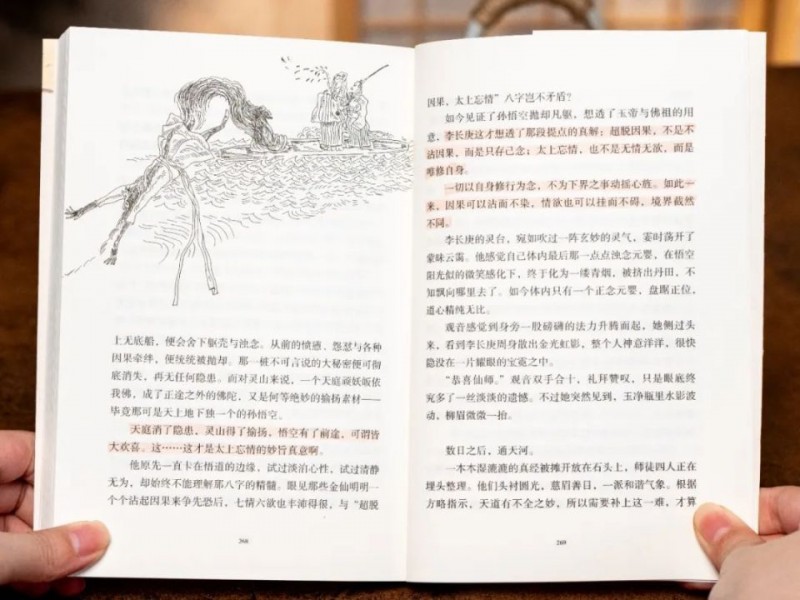 上无底船，便会舍下驱壳与浊念。从前的愤懑、怨怼与各种
因果牵绊，便统统被抛却。那一桩不可言说的大秘密便可彻
底消失，再无任何隐患。而对灵山来说，一个天庭顽妖皈依
我佛，成了正途之外的佛陀，又是何等绝妙的揄扬素材——
毕竟那可是天上地下独一个的孙悟空。
天庭消了隐患，灵山得了揄扬，悟空有了前途，可谓皆
大欢喜。这……这才是太上忘情的妙旨真意啊。
他原先一直卡在悟道的边缘，试过淡泊心性，试过清静
无为，却始终不能理解那八字的精髓。眼见那些金仙明明一
个个沾起因果来争先恐后，七情六欲也丰沛得很，与“超脱
268
因果，太上忘情”八字岂不矛盾？
如今见证了孙悟空抛却凡躯，想透了玉帝与佛祖的用
意，李长庚这才想透了那段提点的真解：超脱因果，不是不
沾因果，而是只存己念；太上忘情，也不是无情无欲，而是
唯修自身。
一切以自身修行为念，不为下界之事动摇心旌。如此一
来，因果可以沾而不染，情欲也可以挂而不碍，境界截然
不同。
李长庚的灵台，宛如吹过一阵玄妙的灵气，霎时荡开了
蒙昧云霭。他感觉自己体内最后那一点点浊念元婴，在悟空
阳光似的微笑感化下，终于化为一缕青烟，被挤出丹田，不
知飘向哪里去了。如今体内只有一个正念元婴，盘踞正位，
道心精纯无比。
观音感觉到身旁一股磅礴的法力升腾而起，她侧过头
来，看到李长庚周身散出金光虹影，整个人神意洋洋，很快
隐没在一片耀眼的宝霓之中。
“恭喜仙师。”观音双手合十，礼拜赞叹，只是眼底终
究多了一丝淡淡的遗憾。不过她突然见到，玉净瓶里水影波
动，柳眉微微一抬。
数日之后，通天河。
一本本湿漉漉的真经被摊开放在石头上，师徒四人正在
埋头整理。他们头衬圆光，慈眉善目，一派和谐气象。根据
方略指示，天道有不全之妙，所以需要补上这一难，才算
269